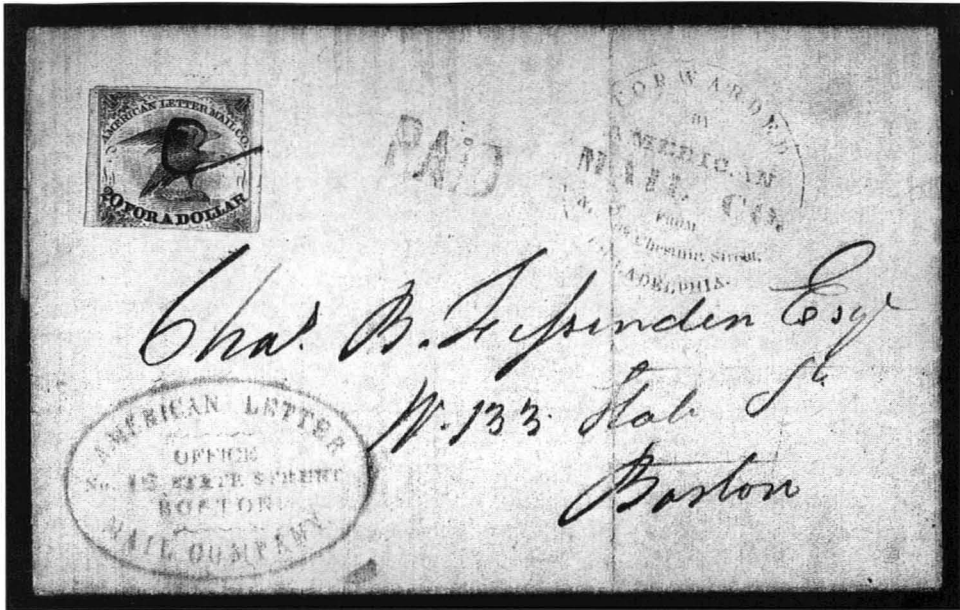 AMERICAN LETTER MAIL CO.
20 FOR A DOLLAR
PAID
FORWARDED
BY
AMERICAN
MAIL CO.
FROM
Chesnut Street,
PHILADELPHIA.
Chas. B. Fessenden Esqr
N. 133 State St
Boston
AMERICAN LETTER
OFFICE
No. 18 STATE STREET
BOSTON
MAIL COMPANY